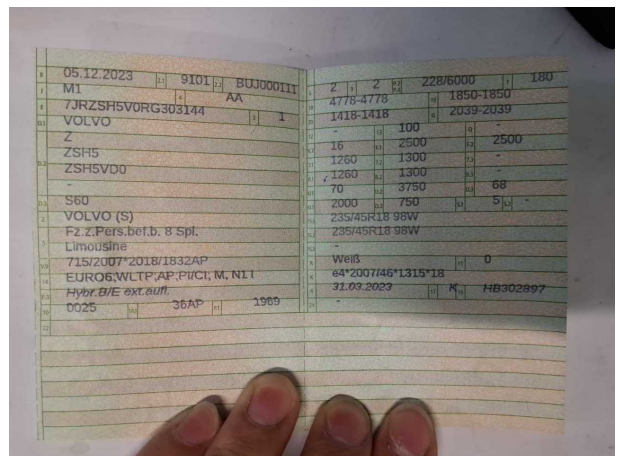 05.12.2023 9101 BUJ000111
M1 AA
7JRZSH5V0RG303144 1
VOLVO
Z
ZSH5
ZSH5VD0
-
S60
VOLVO (S)
Fz.z.Pers.bef.b. 8 Spl.
Limousine
715/2007*2018/1832AP
EURO6;WLTP;AP;PI/CI; M, N1 I
Hybr.B/E ext.aufl.
0025 36AP 1969
2 2 228/6000 180
4778-4778 1850-1850
1418-1418 2039-2039
- 100 -
16 2500 2500
1260 1300 -
1260 1300 -
70 3750 68
2000 750 5 -
235/45R18 98W
235/45R18 98W
-
Weiß 0
e4*2007/46*1315*18
31.03.2023 K HB302897
-